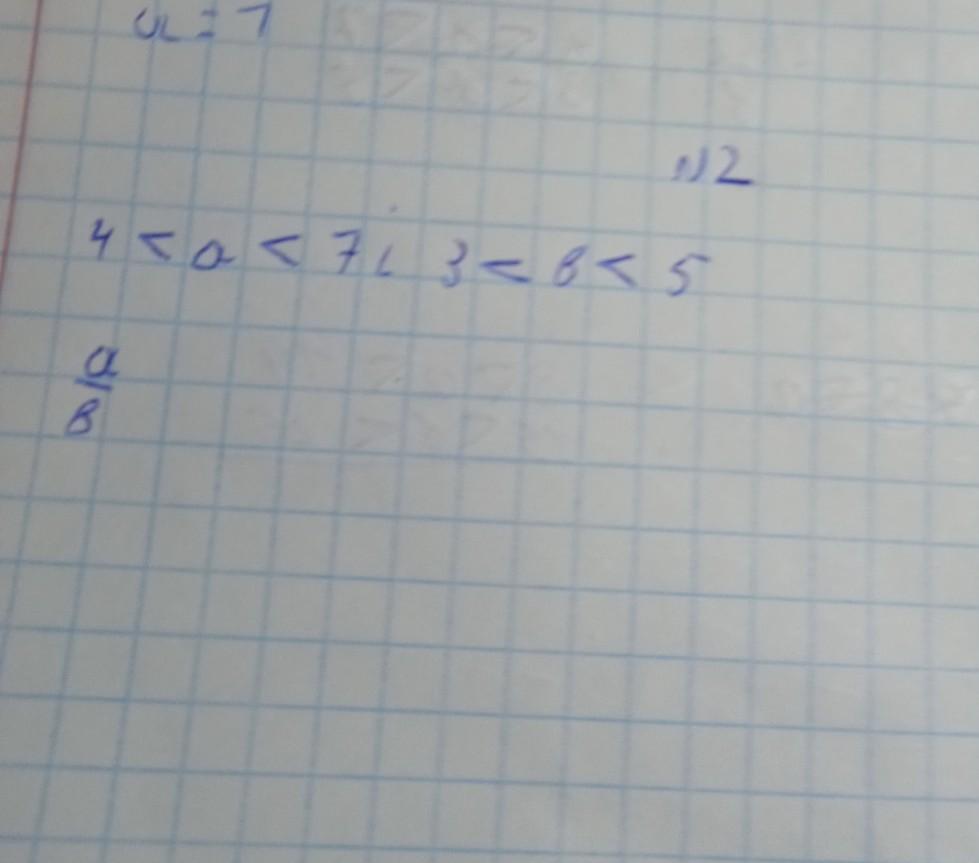 a = 7
№2
4 < a < 7 i 3 < в < 5
a
в